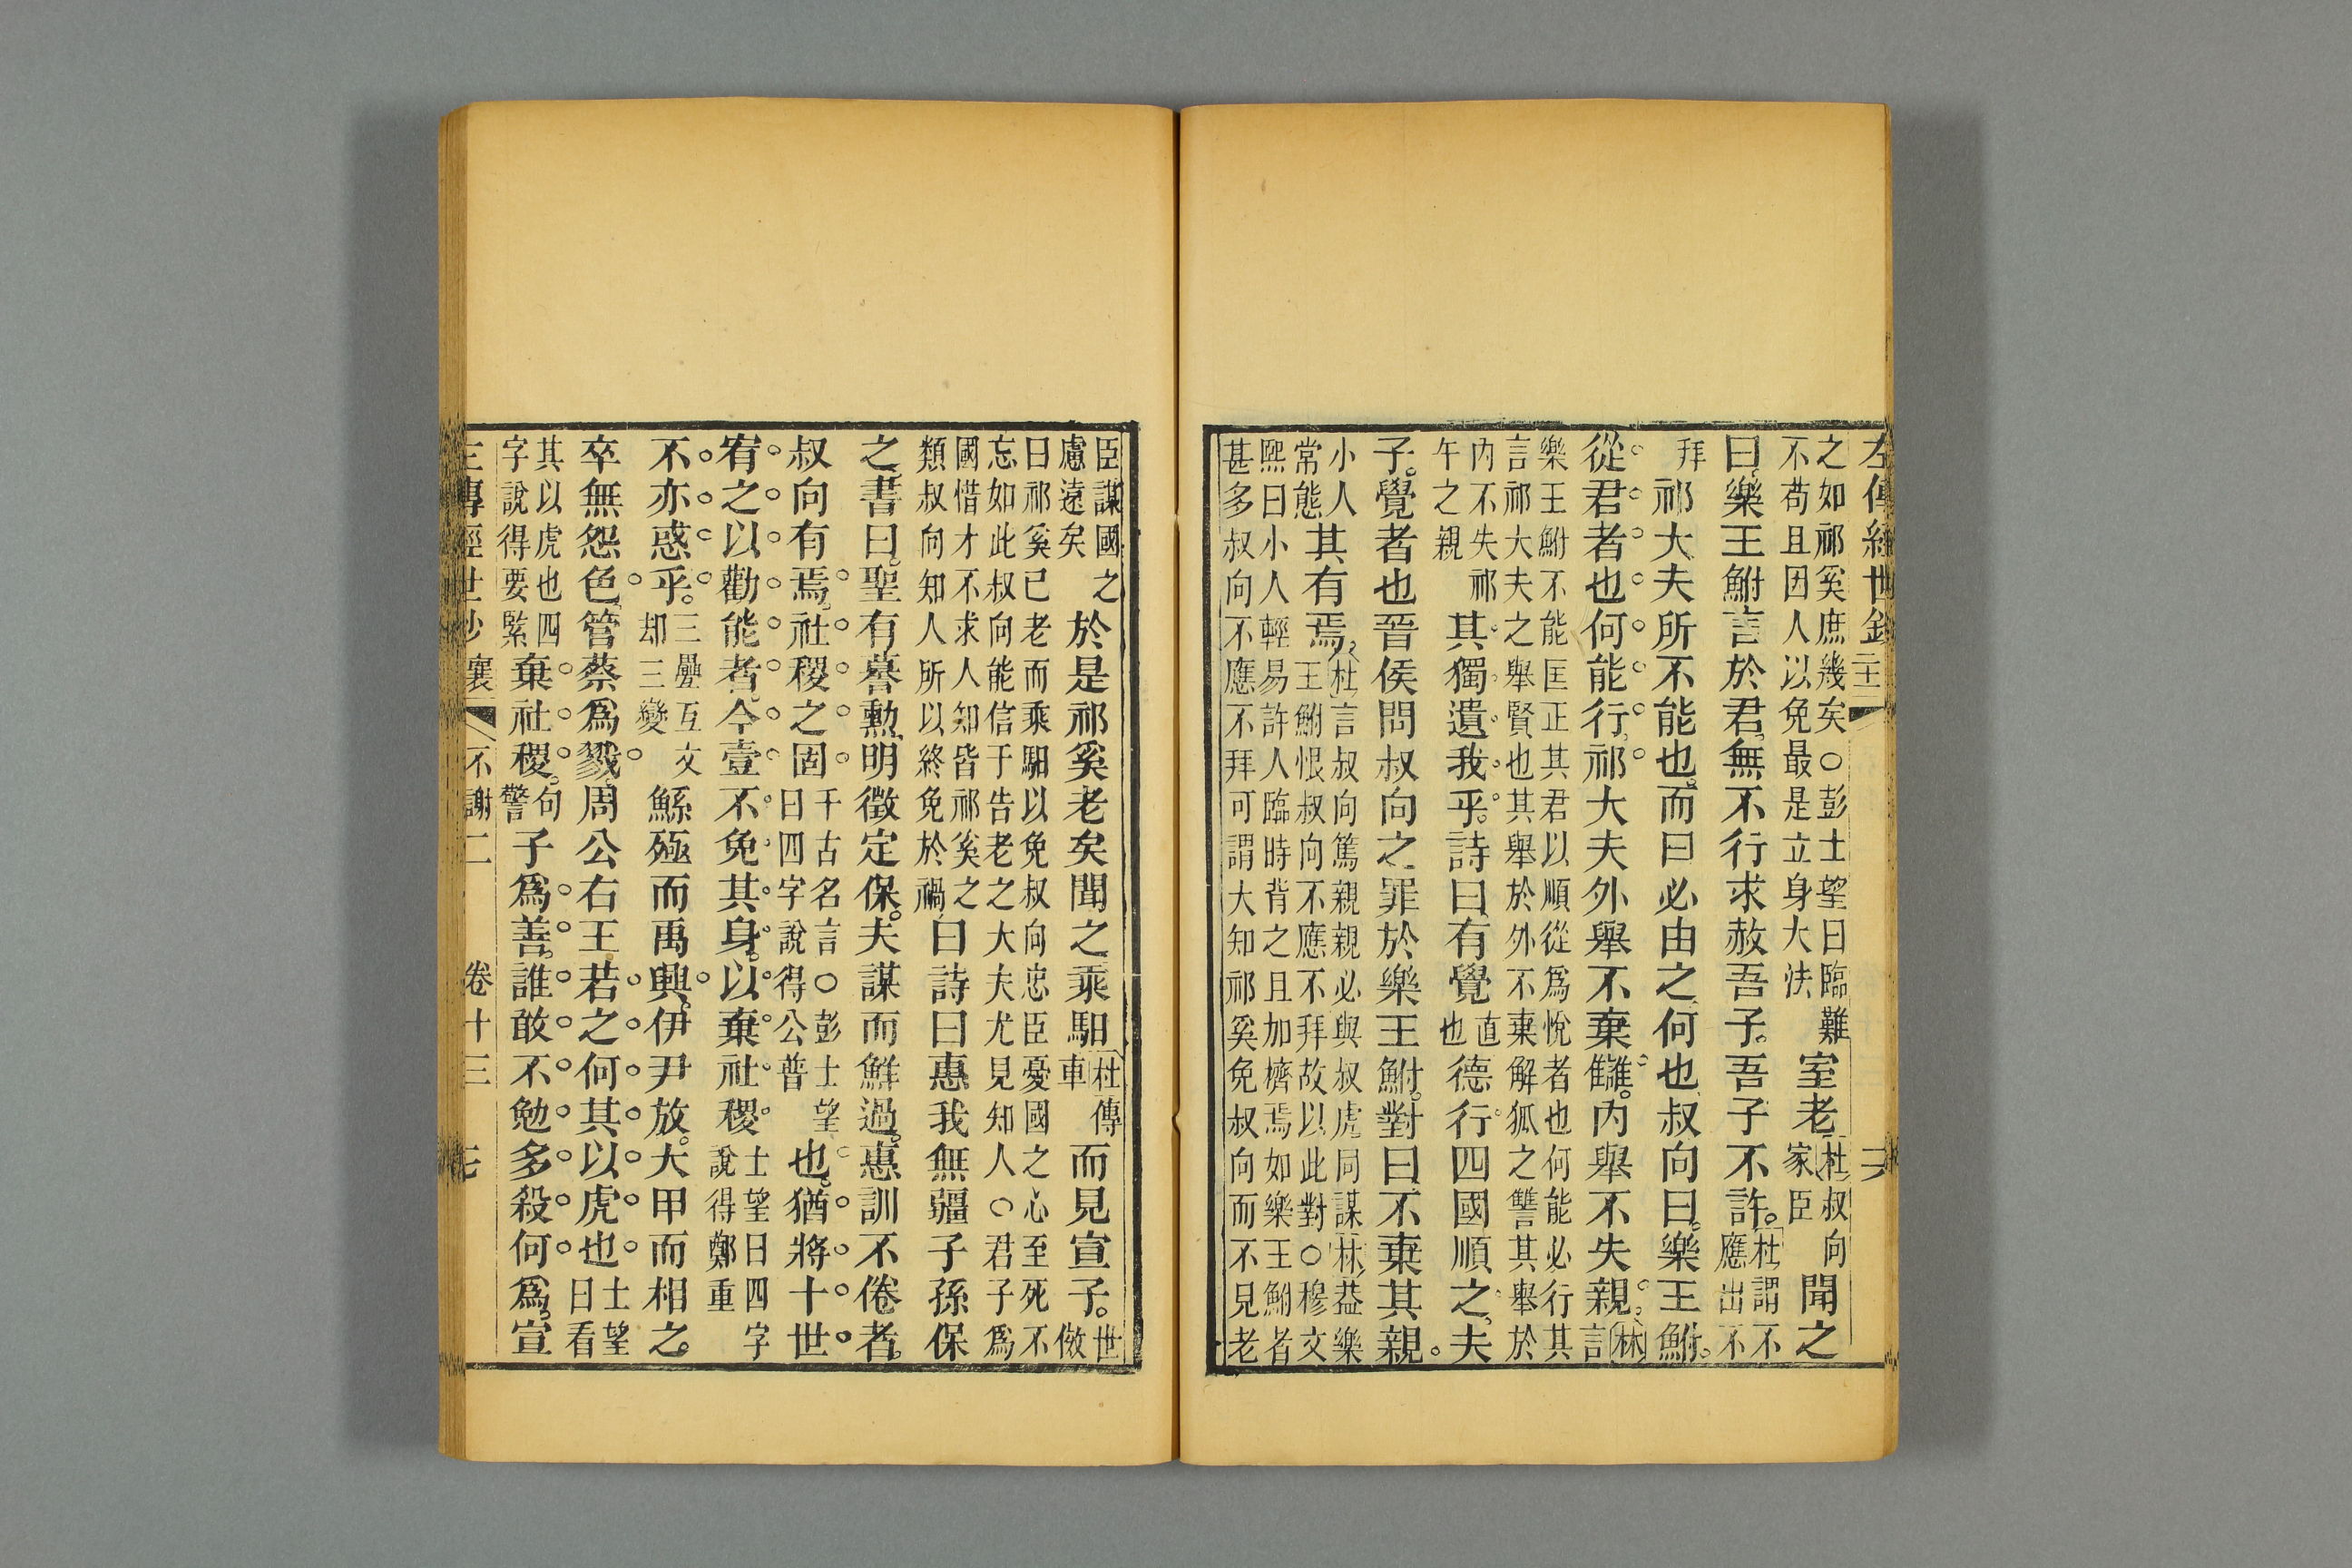 左傳經世鈔
之如祁奚庶幾矣○彭士望曰臨難
不苟且因人以免最是立身大法
室老
杜叔向
家臣
聞之
曰樂王鮒言於君無不行求赦吾子。吾子不許。
杜謂不
應出不
拜
祁大夫所不能也。而曰必由之何也叔向曰。樂王鮒。
從君者也何能行祁大夫外舉不棄讎。內舉不失親。
林
言
樂王鮒不能匡正其君以順從爲悅者也何能必行其
言祁大夫之舉賢也其舉於外不棄解狐之讐其舉於
內不失祁
午之親
其獨遺我乎。詩曰有覺
直
也
德行四國順之。夫
子。覺者也晉侯問叔向之罪於樂王鮒。對曰不棄其親。
小人
常態
其有焉
杜言叔向篤親親必與叔虎同謀林益樂
王鮒恨叔向不應不拜故以此對○穆文
熙曰小人輕易許人臨時背之且加擠焉如樂王鮒者
甚多叔向不應不拜可謂大知祁奚免叔向而不見老
臣謀國之
慮遠矣
於是祁奚老矣聞之乘馹
杜傳
車
而見宣子。
世
倣
曰祁奚已老而乘馹以免叔向忠臣憂國之心至死不
忘如此叔向能信于告老之大夫尤見知人○君子爲
國惜才不求人知皆祁奚之
類叔向知人所以終免於禍
曰詩曰惠我無疆子孫保
之書曰。聖有謩勳明徵定保。夫謀而鮮過。惠訓不倦者。
叔向有焉。社稷之固
千古名言○彭士望
曰四字說得公普
也。猶將十世
宥之以勸能者。今壹不免其身。以棄社稷
士望曰四字
說得鄭重
不亦惑乎。
三疊互文
却三變
鯀殛而禹興。伊尹放。大甲而相之。
卒無怨色。管蔡爲戮。周公右王若之何其以虎也
士望
曰看
其以虎也四
字說得要緊
棄社稷。
句
警
子爲善。誰敢不勉多殺何爲。宣
左傳經世鈔 襄 不謝二 卷十三